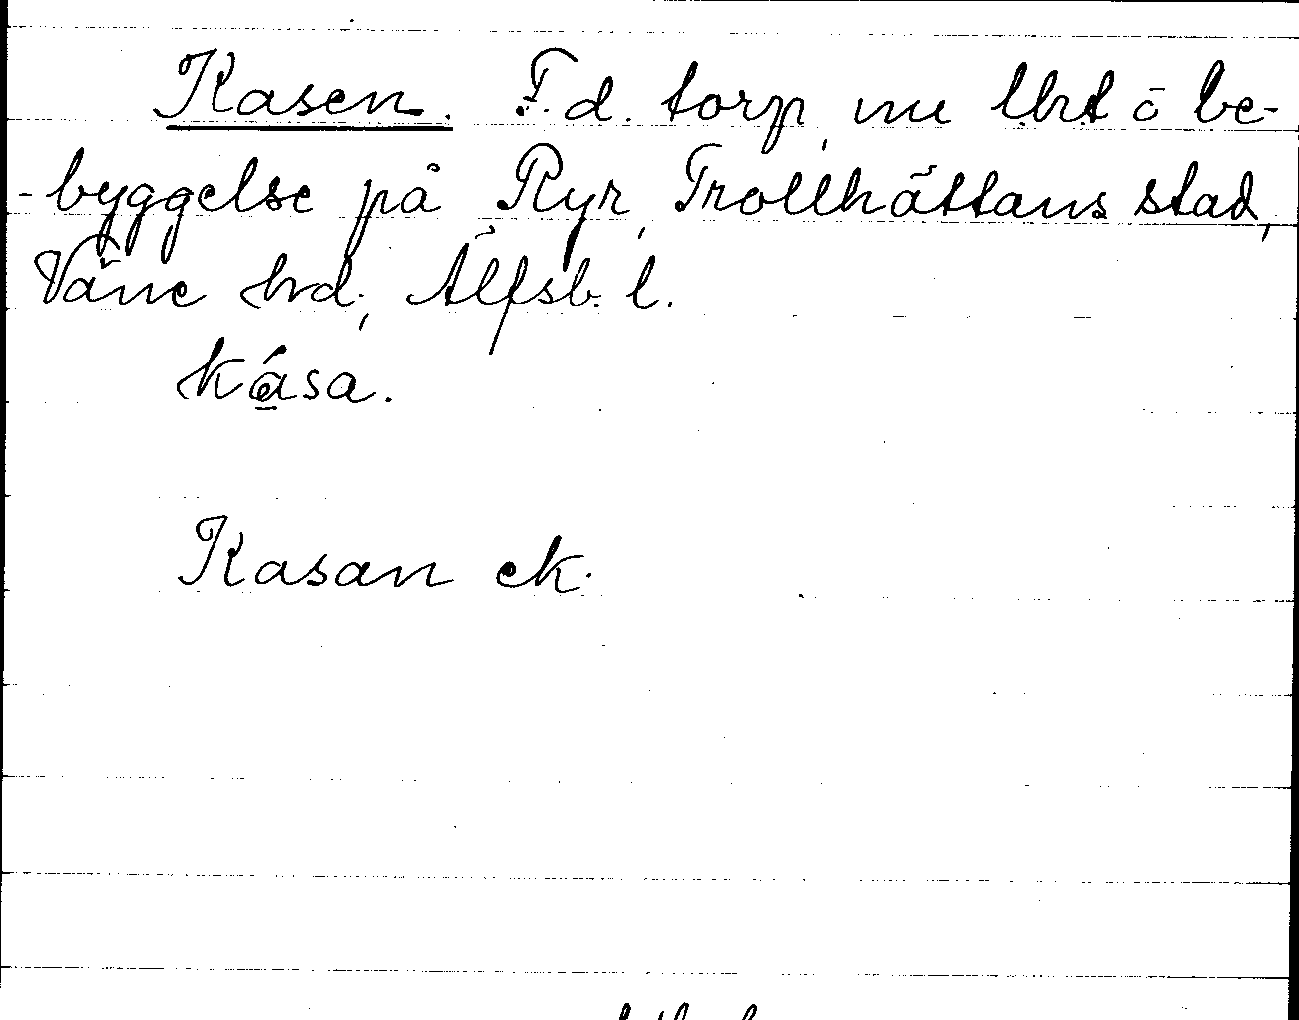 Kasen. F.d. torp, nu lht o be-
-byggelse på Ryr, Trollhättans stad,
Väne hd, Älfsb. l.
kása.
Kasan ek.